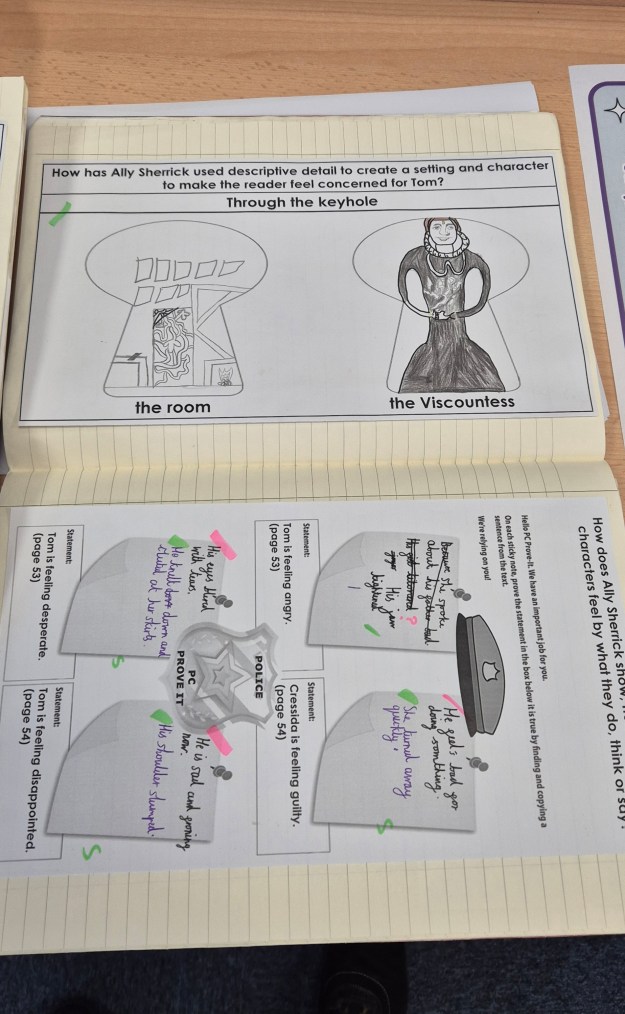 How has Ally Sherrick used descriptive detail to create a setting and character
to make the reader feel concerned for Tom?
Through the keyhole
the room
the Viscountess
How does Ally Sherrick show,
characters feel by what they do, think or say
Hello PC Prove-It. We have an important job for you.
On each sticky note, prove the statement in the box below it is true by finding and copying a
sentence from the text.
We're relying on you!
Because she spoke
about his father had
?
His jaw
tightened
Statement:
Tom is feeling angry.
(page 53)
He feel's bad
doing something.
She turned away
quickly.
S
Statement:
Cressida is feeling guilty.
(page 54)
POLICE
PC
PROVE IT
His eyes blured
with tears.
He knelt down and
at her skirts.
S
Statement:
Tom is feeling desperate.
(page 53)
He is sad and
now.
His shoulder slumped.
S
Statement:
Tom is feeling disappointed.
(page 54)